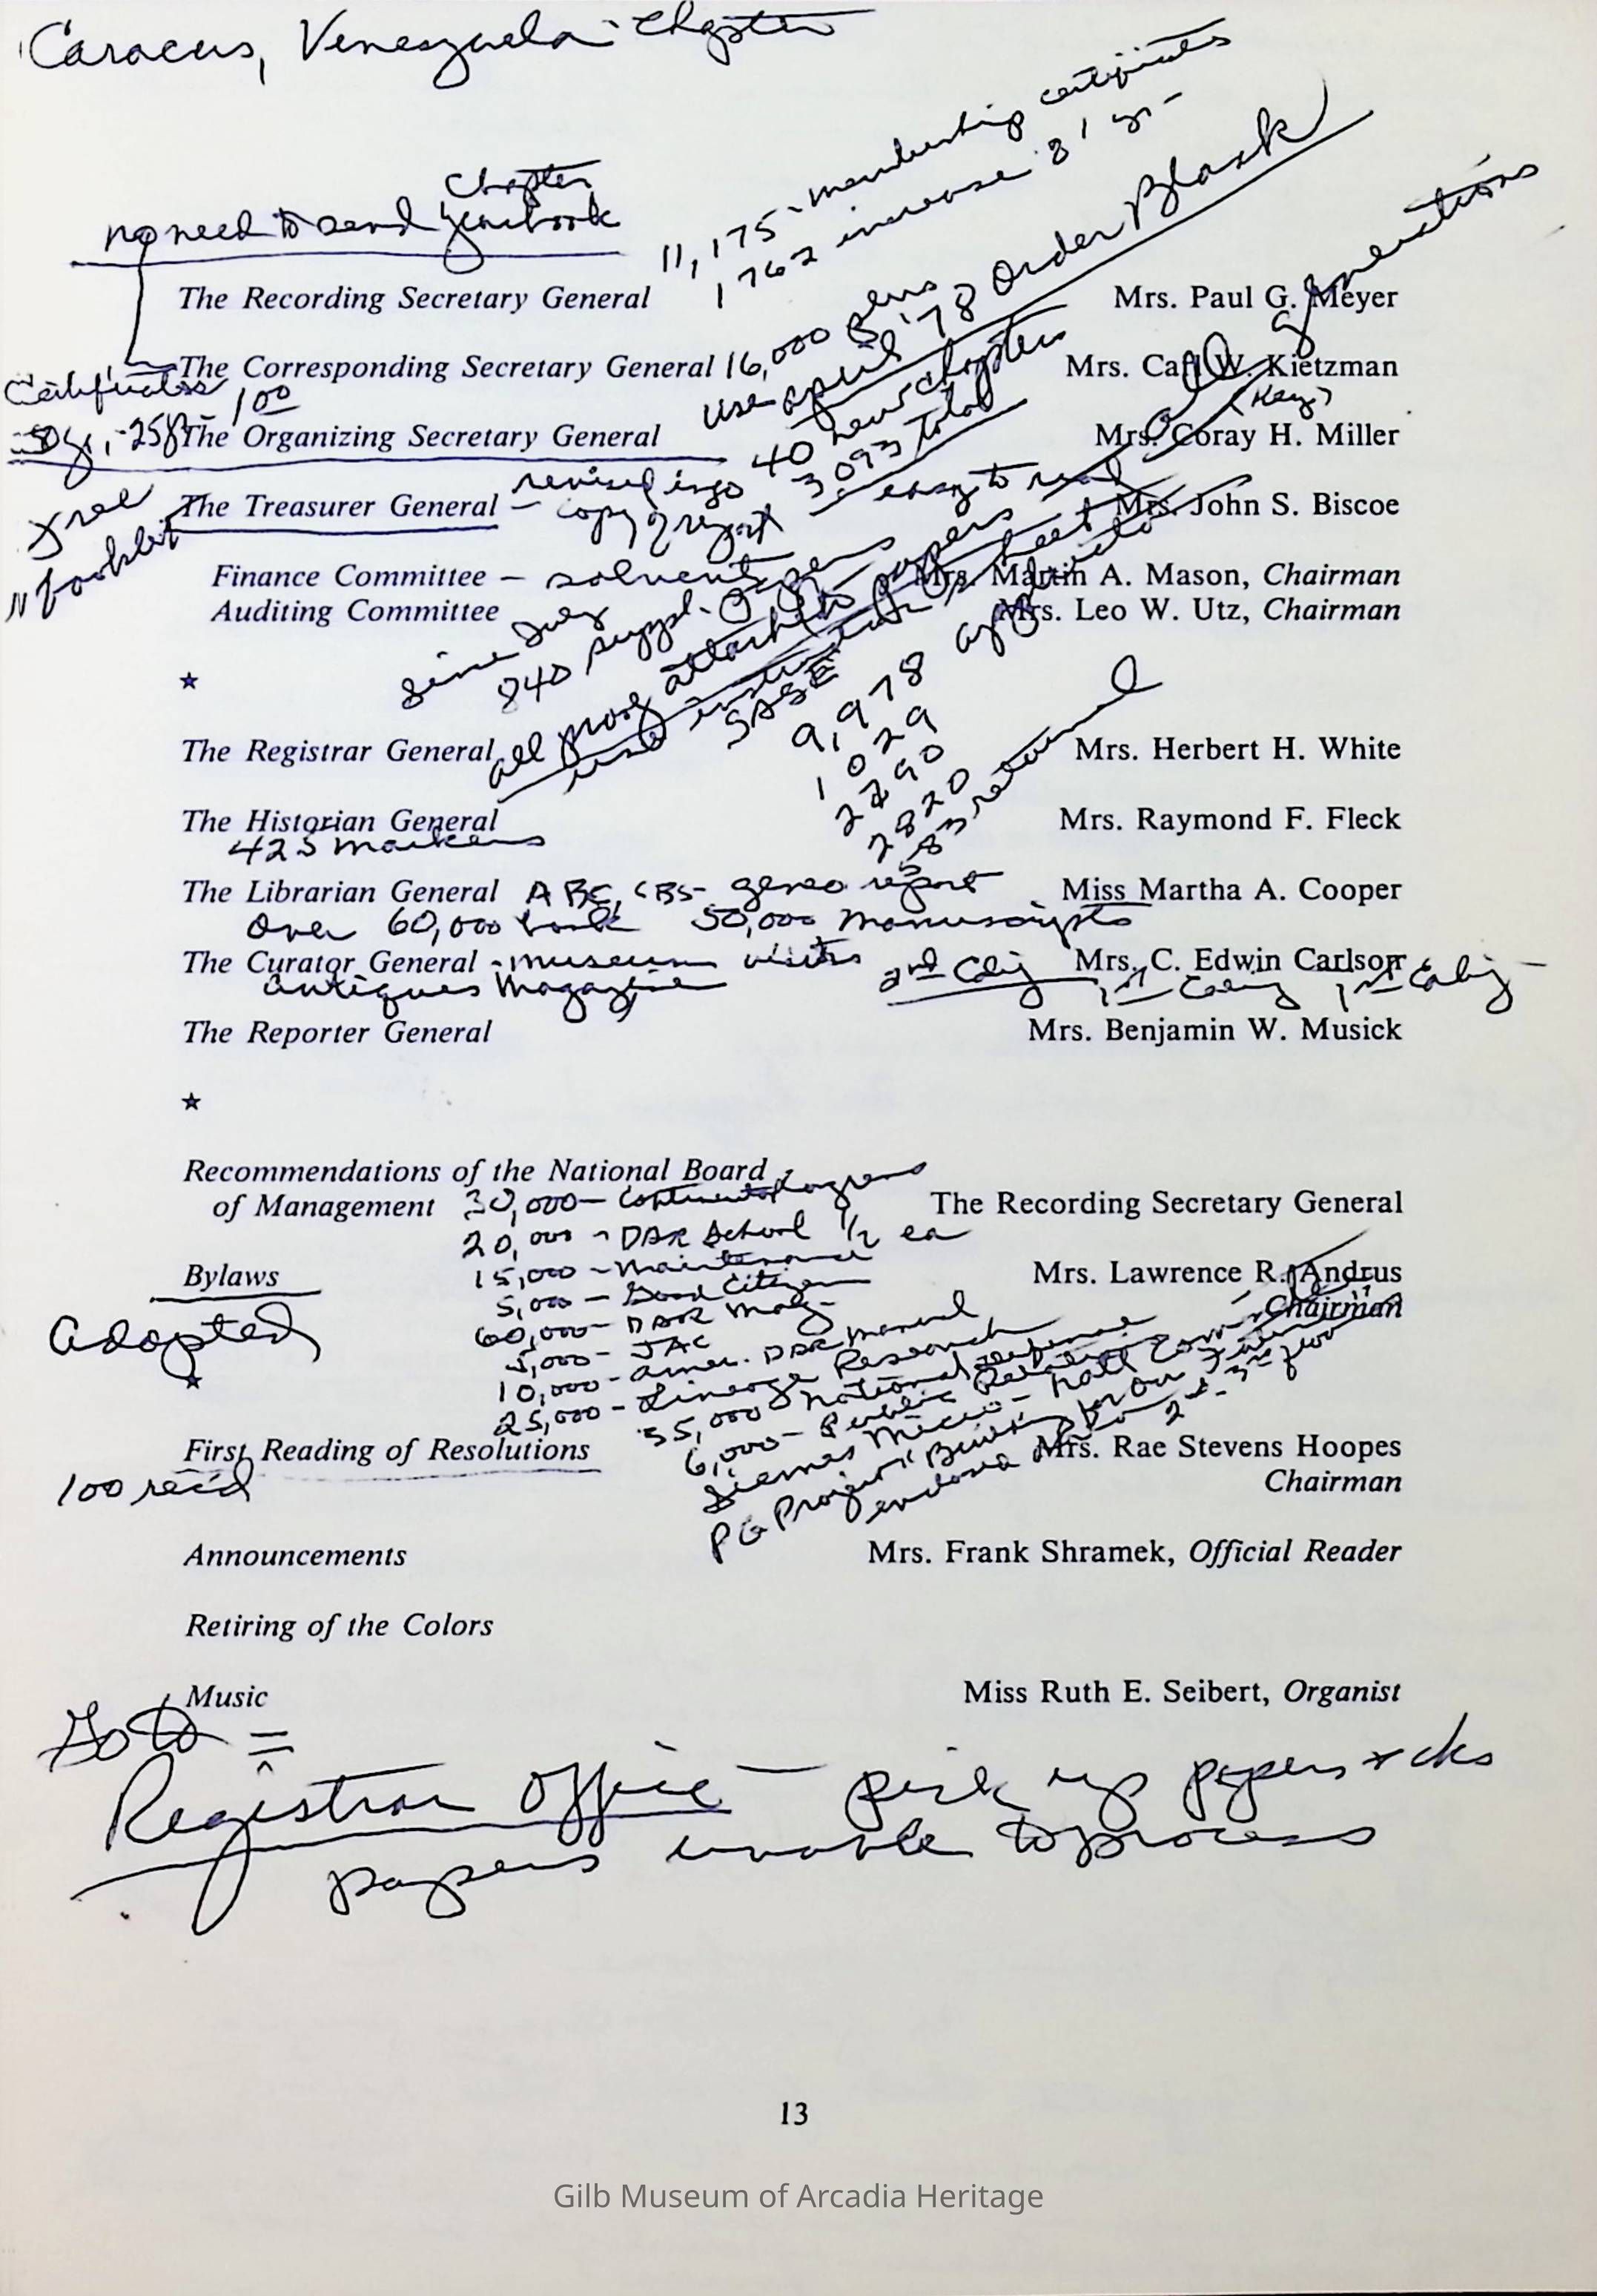 Caracus, Venezuela - Chapter
11,175 - membership certificates
1,762 increase
no need to send Chapter yearbook
The Recording Secretary General Mrs. Paul G. Meyer
The Corresponding Secretary General Mrs. Carl W. Kietzman
16,000 plus
use April '78 Order Blank
Certificates 1 00
The Organizing Secretary General Mrs. Coray H. Miller
40 new chapters
3093 total
all generations
(Key)
The Treasurer General Mrs. John S. Biscoe
revised
copy of report
easy to read
free
booklet
Finance Committee - solvent Mrs. Martin A. Mason, Chairman
Auditing Committee Mrs. Leo W. Utz, Chairman
since July
840 suppl. papers
all proof attached to papers
use instruction sheet
SASE
9,978
1029
2290
2820
583 returned
★
The Registrar General Mrs. Herbert H. White
The Historian General Mrs. Raymond F. Fleck
423 markers
The Librarian General Miss Martha A. Cooper
ABC, CBS - report
Over 60,000 book 50,000 manuscripts
The Curator General - museum visits Mrs. C. Edwin Carlson
antiques magazine
The Reporter General Mrs. Benjamin W. Musick
★
Recommendations of the National Board
of Management The Recording Secretary General
30,000 - Continental Congress
20,000 - DAR School 1/2 ea
15,000 - Maintenance
Bylaws Mrs. Lawrence R. Andrus
Chairman
5,000 - Good Citizen
60,000 - DAR Mag -
Adopted
5,000 - JAC
10,000 - amer. DAR manual
25,000 - Lineage Research
★
55,000 National Defense
6,000 - Public Relations
First Reading of Resolutions Mrs. Rae Stevens Hoopes
Chairman
100 rec'd
PG Project
Announcements Mrs. Frank Shramek, Official Reader
Retiring of the Colors
Music Miss Ruth E. Seibert, Organist
Go to =
Registrar Office - pick up papers + cks
papers unable to process
13
Gilb Museum of Arcadia Heritage